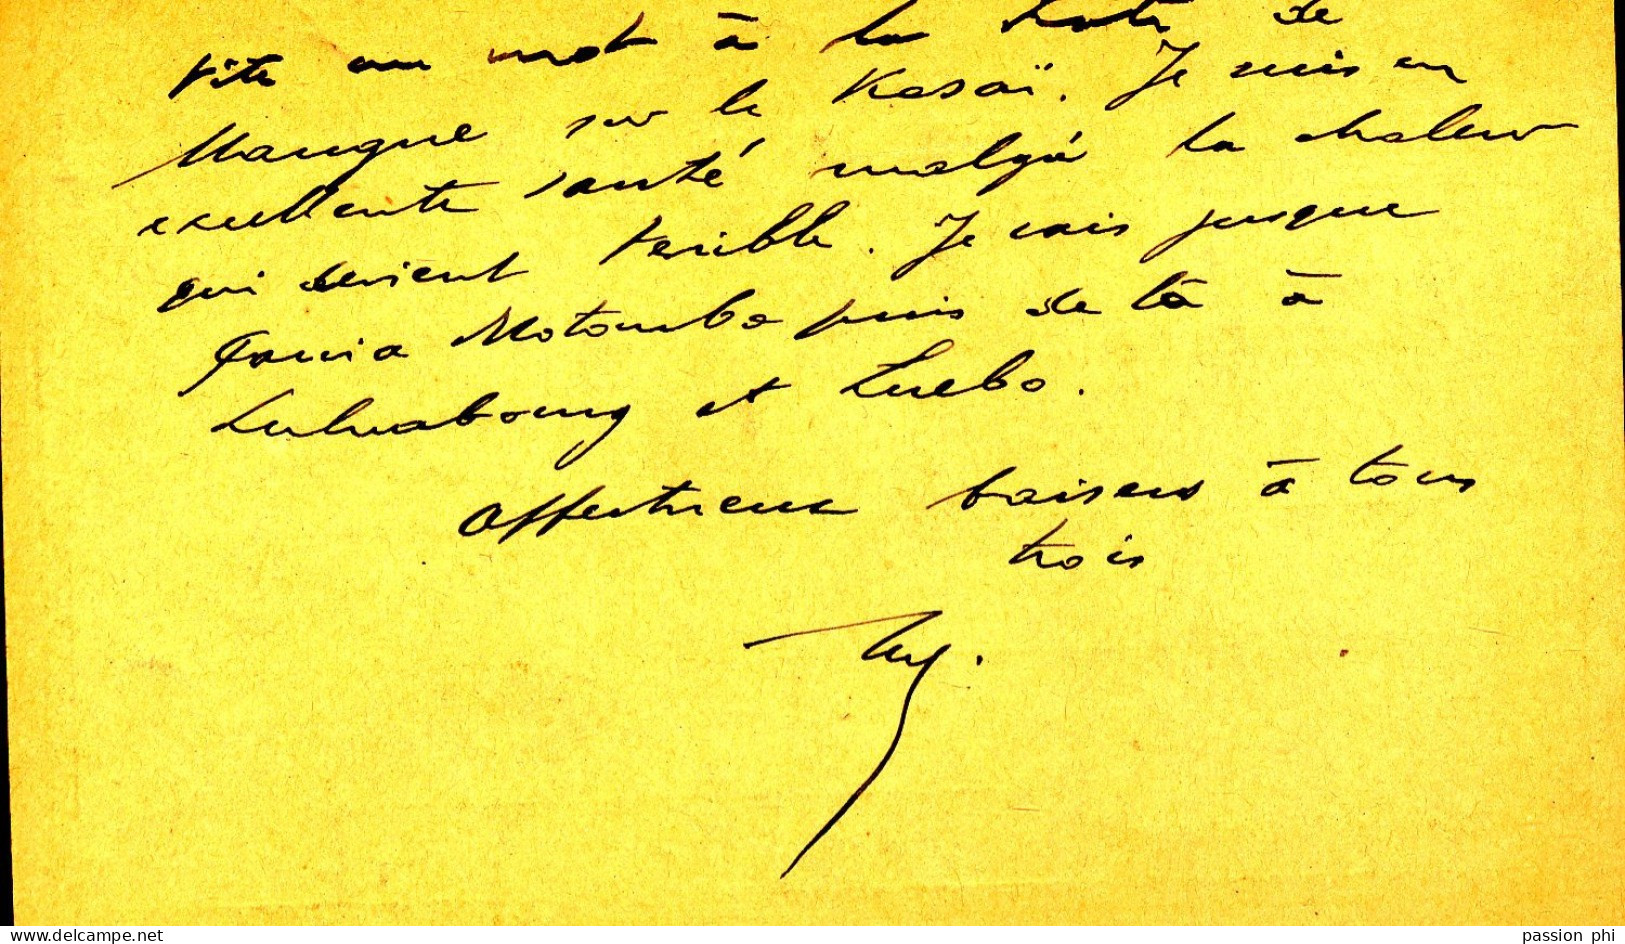 vite un mot à la hate de
Mangue sur le Kasaï. Je suis en
excellente santé malgré la chaleur
qui devient terrible. Je vais jusque
Motombo puis de là à
Luluabourg et Luebo.
Affectueux baisers à tous
trois
www.delcampe.net
passion phi